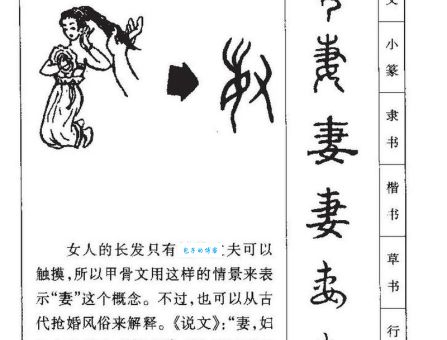 小篆
隶书
楷书
草书
行
妻
妻
妻
女人的长发只有 包子的博客 夫可以
触摸，所以甲骨文用这样的情景来表
示“妻”这个概念。不过，也可以从古
代抢婚风俗来解释。《说文》：“妻，妇